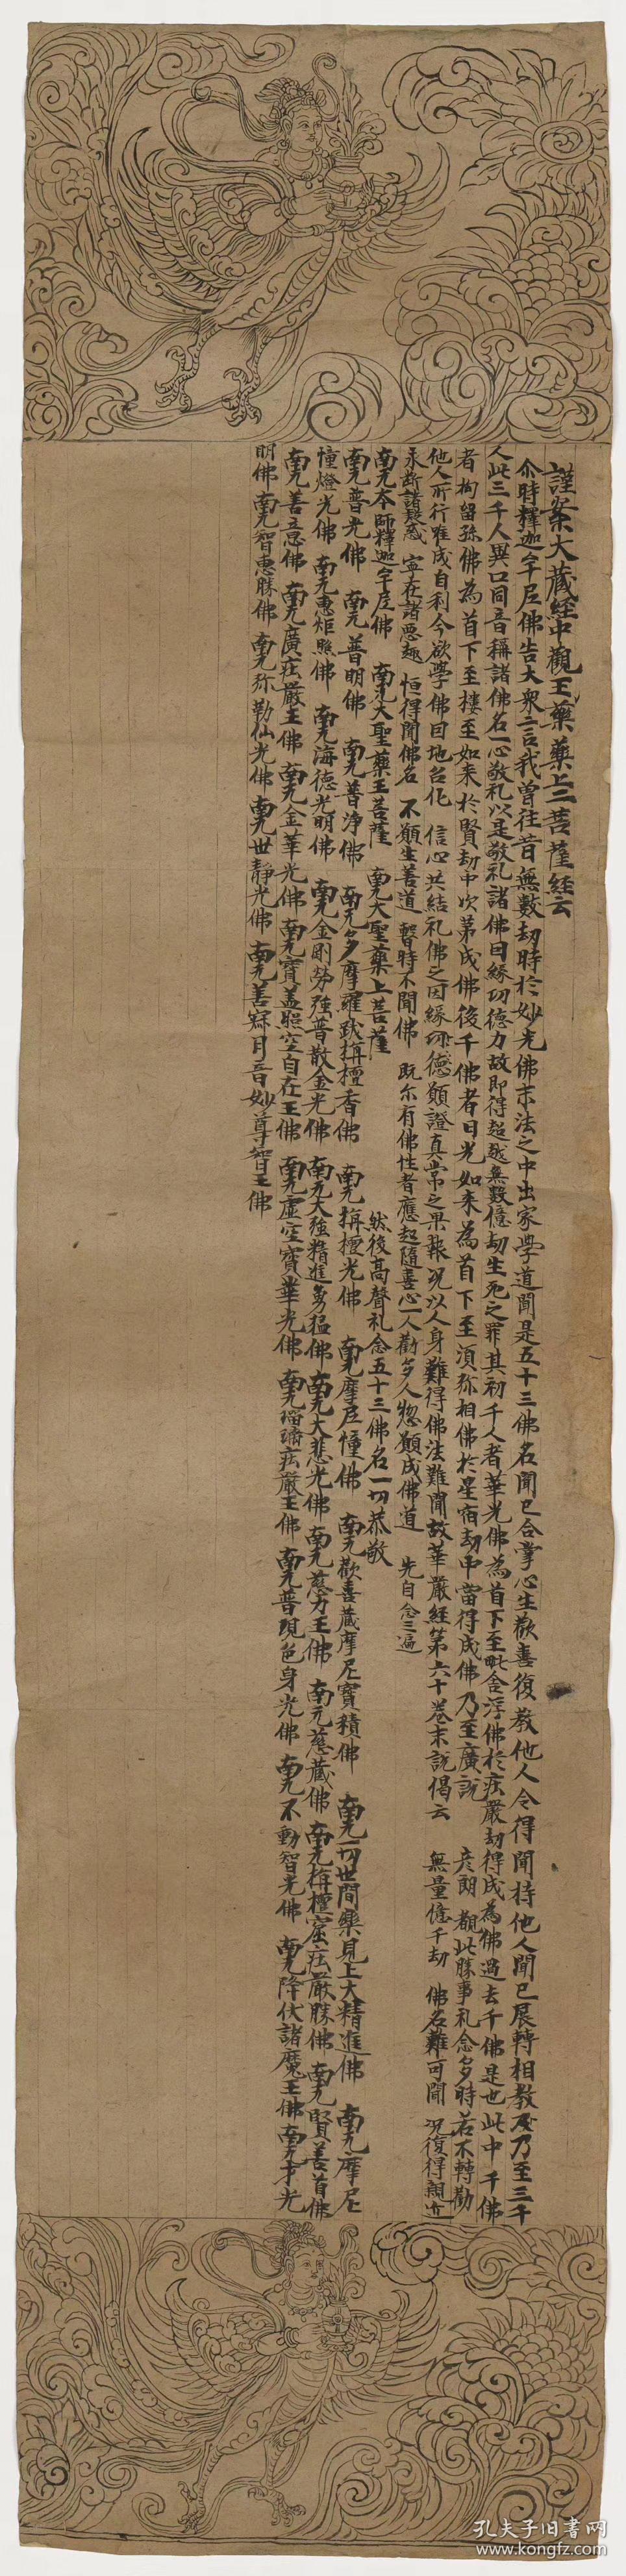 謹案大藏經中觀王藥藥上二菩薩經云
尒時釋迦牟尼佛告大衆言我曽往昔無數劫時於妙光佛末法之中出家學道聞是五十三佛名聞已合掌心生歡喜復教他人令得聞持他人聞已展轉相教乃至三千
人此三千人異口同音稱諸佛名一心敬礼以是敬礼諸佛因縁功德力故即得超越無數億劫生死之罪其初千人者華光佛為首下至毗舍浮佛於庄嚴劫得成為佛過去千佛是也此中千佛
者拘留孫佛為首下至樓至如来於賢劫中次第成佛後千佛者日光如来為首下至湏弥相佛於星宿劫中當得成佛乃至廣說 彦朗覩此勝事礼念多時若不轉勸
他人所行唯成自利今欲學佛因地台化 信心共結礼佛之因縁功德願證真常之果報况以人身難得佛法難聞故華嚴經第六十卷末說偈云 無量億千劫 佛名難可聞 况復得親近
永斷諸疑惑 寧在諸悪趣 恒得聞佛名 不願生善道 暫時不聞佛 既尒有佛性者應起隨喜心一人勸多人惣願成佛道 先自念三遍
南无本師釋迦牟尼佛 南无大聖藥王菩薩 南无大聖藥上菩薩 然後高聲礼念五十三佛名一切恭敬
南无普光佛 南无普明佛 南无普浄佛 南无多摩羅跋栴檀香佛 南无栴檀光佛 南无摩尼幢佛 南无歡喜藏摩尼寳積佛 南无一切世間樂見上大精進佛 南无摩尼
幢燈光佛 南无惠炬照佛 南无海德光明佛 南无金剛勞強普散金光佛 南无大強精進勇猛佛 南无大悲光佛 南无慈力王佛 南无慈藏佛 南无栴檀窟庄嚴勝佛 南无賢善首佛
南无善意佛 南无廣庄嚴王佛 南无金華光佛 南无寳盖照空自在王佛 南无虚空寳華光佛 南无瑠璃庄嚴王佛 南无普現色身光佛 南无不動智光佛 南无降伏諸魔王佛 南无才光
明佛 南无智惠勝佛 南无弥勒仙光佛 南无世静光佛 南无善寂月音妙尊智王佛
孔夫子旧书网
www.kongfz.com